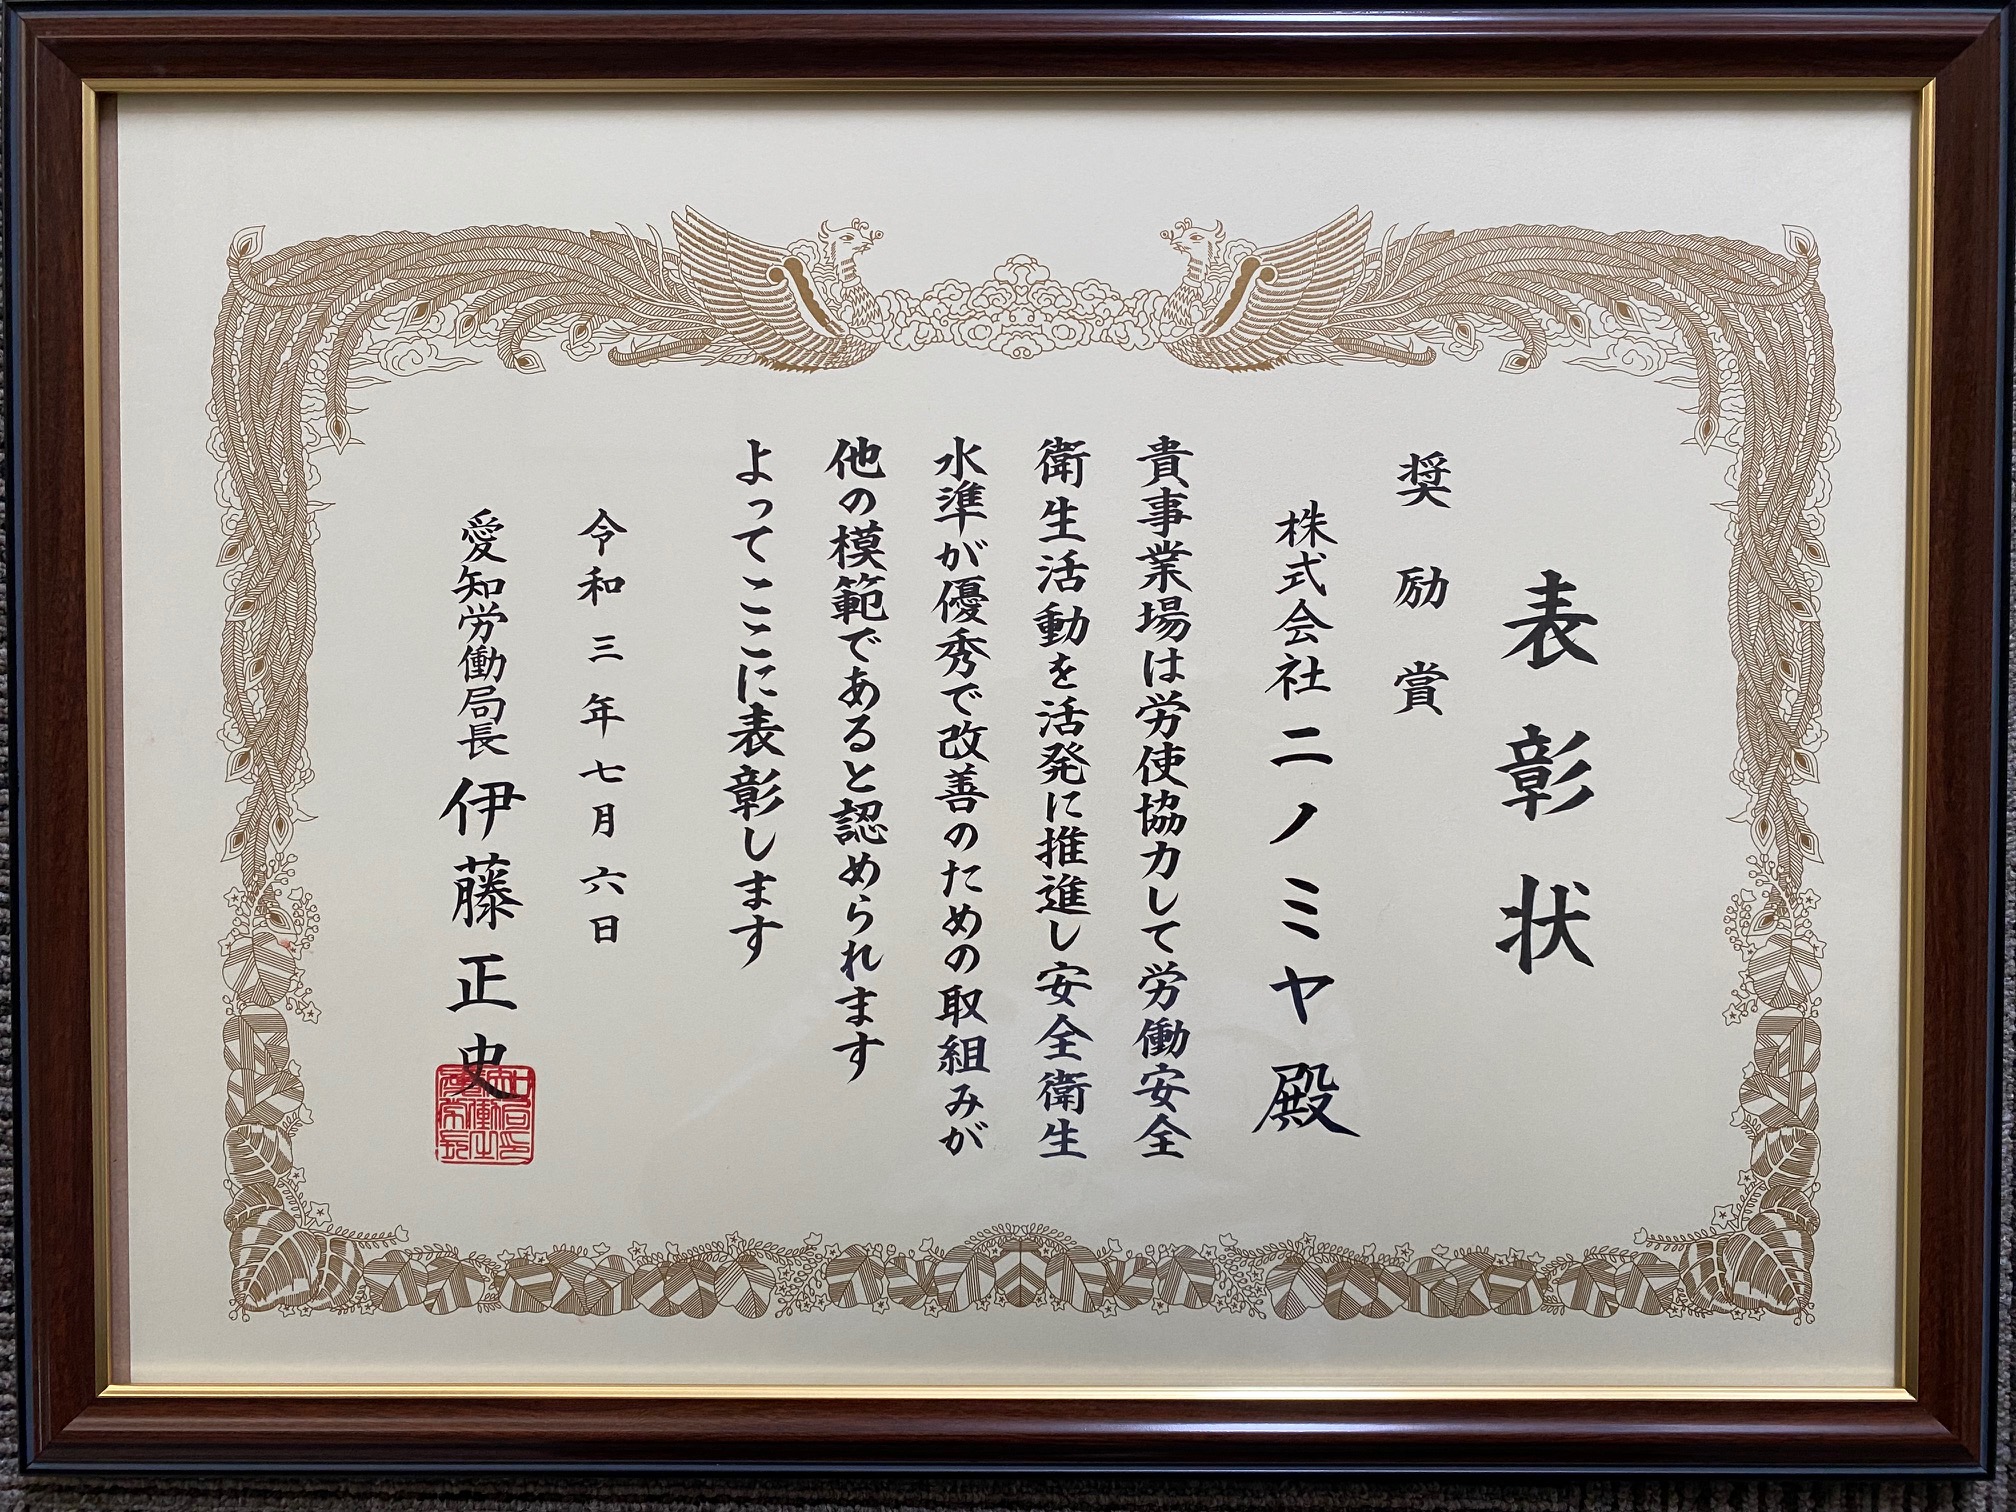 表彰状
奨励賞
株式会社ニノミヤ殿
貴事業場は労使協力して労働安全
衛生活動を活発に推進し安全衛生
水準が優秀で改善のための取組みが
他の模範であると認められます
よってここに表彰します
令和三年七月六日
愛知労働局長 伊藤正史